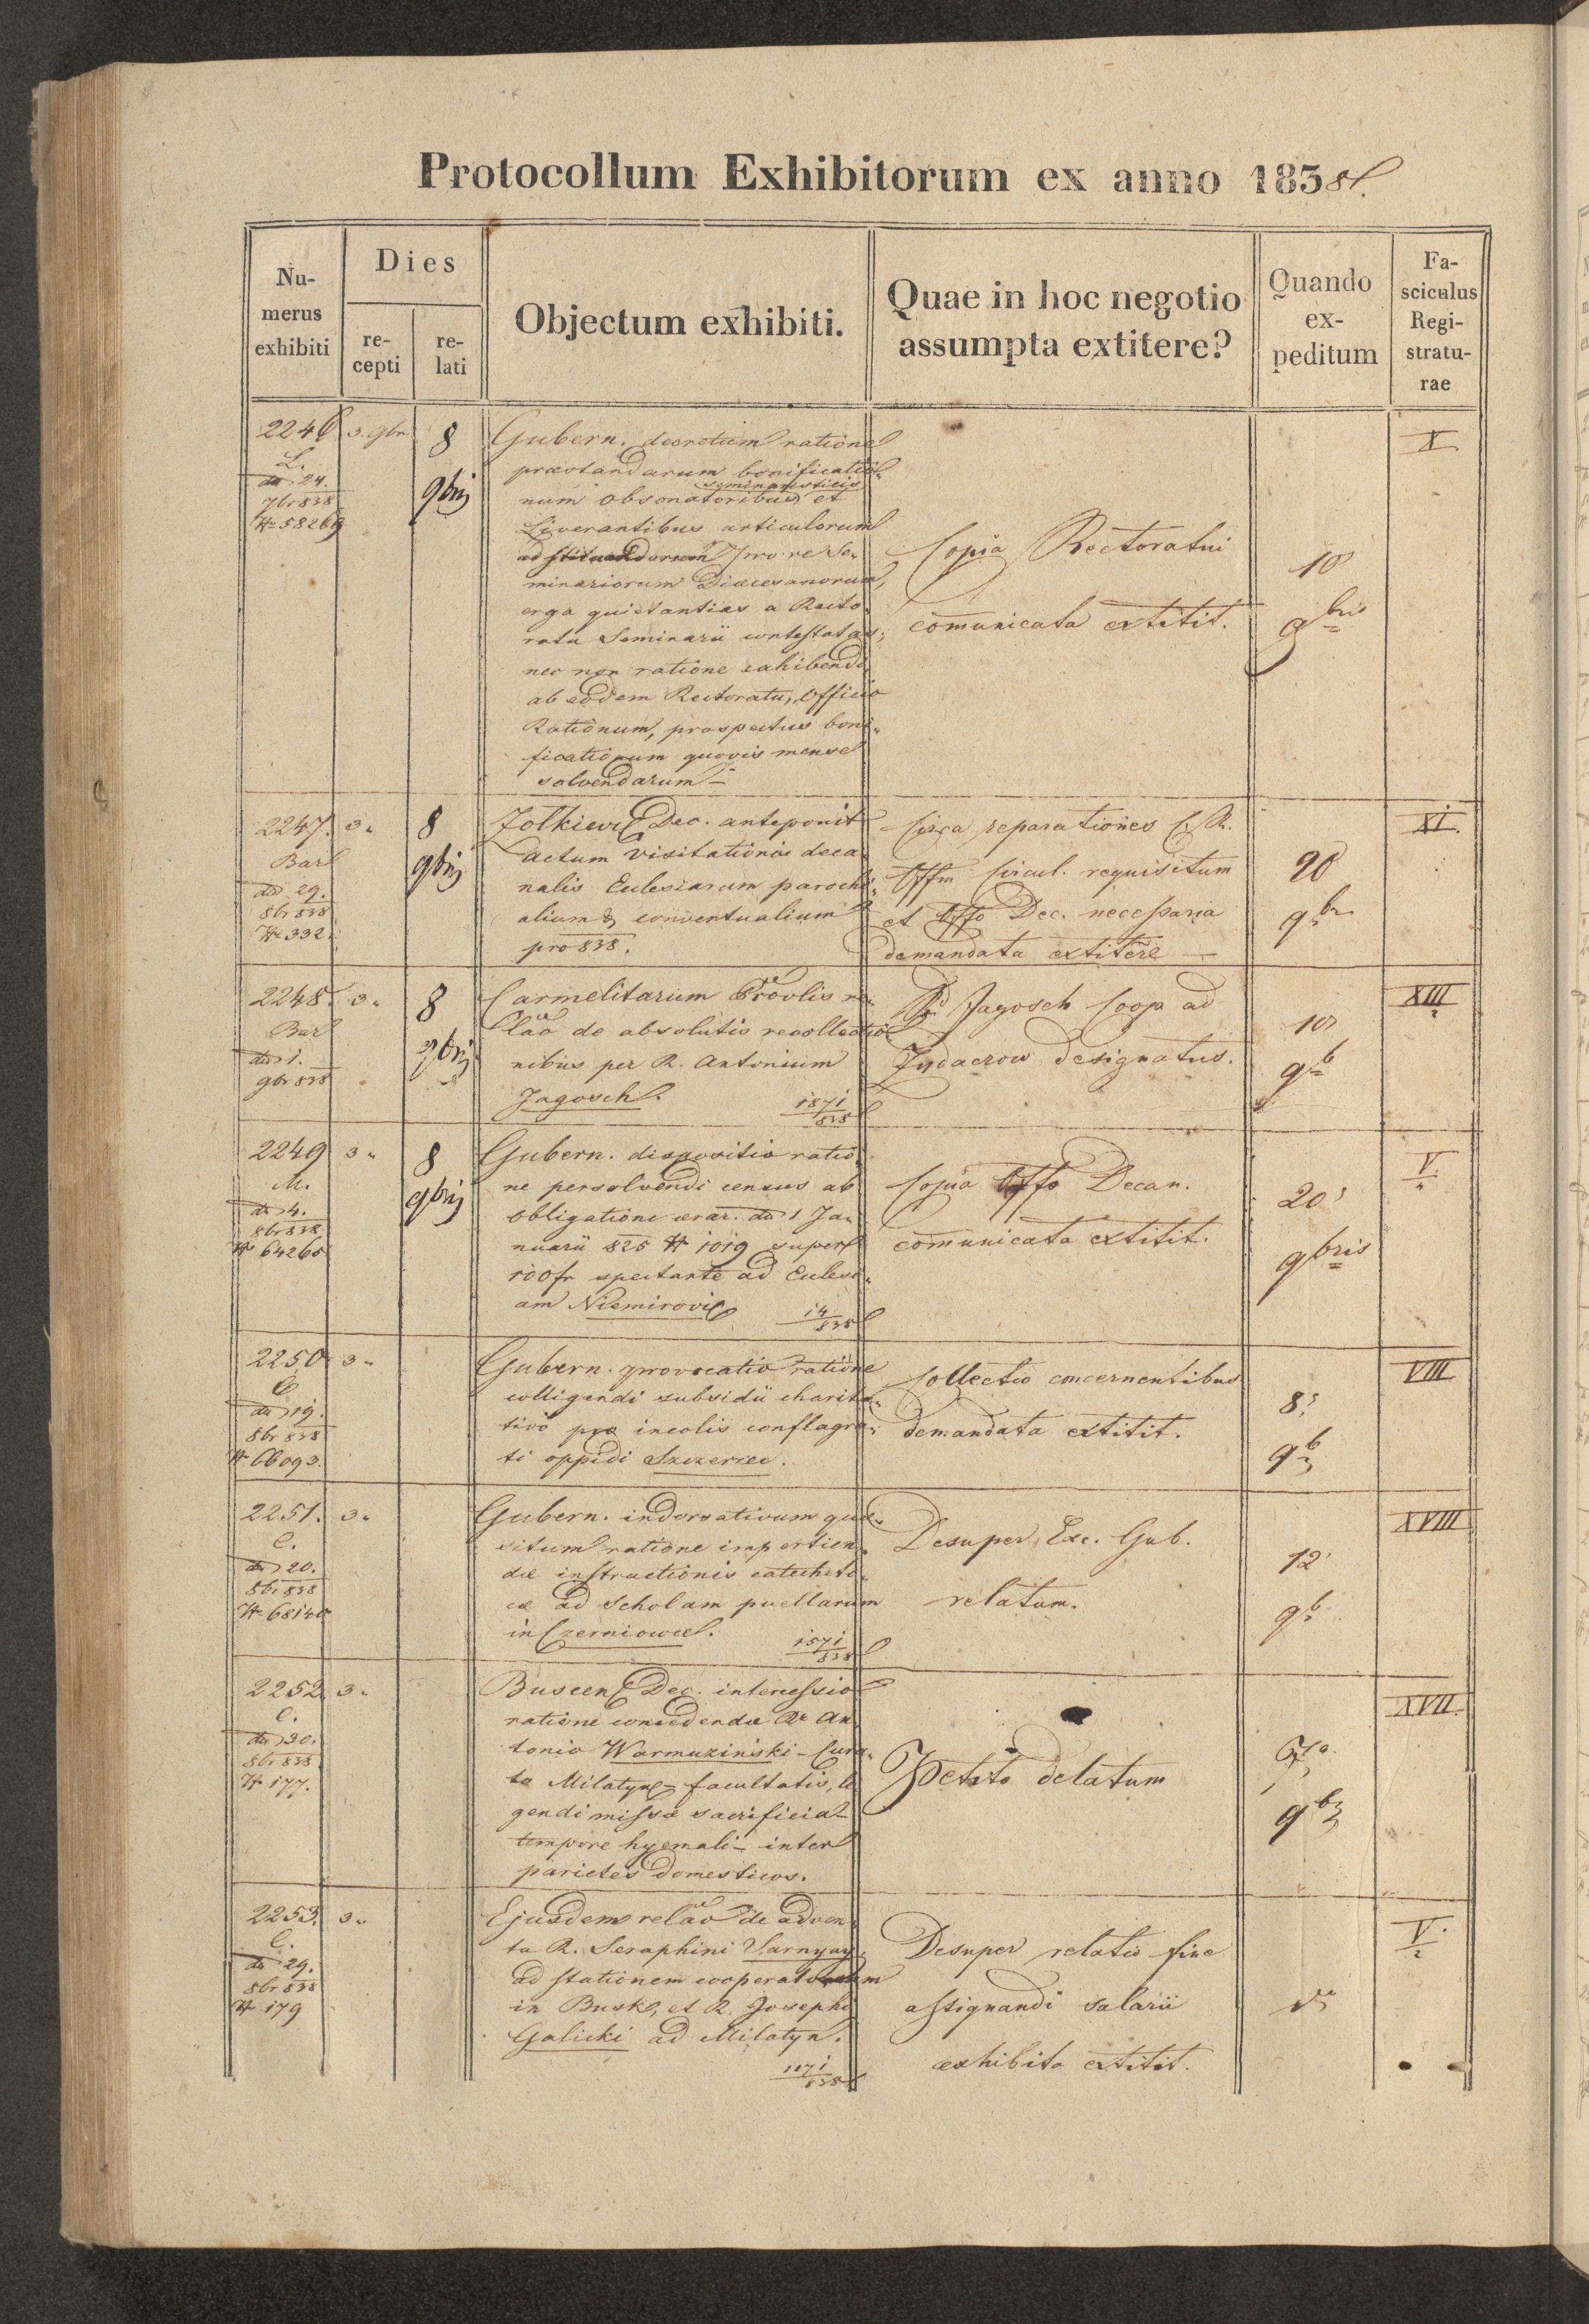 Protocollum Exhibitorum ex anno 1838.
Numerus exhibiti
Dies
recepti
relati
Objectum exhibiti.
Quae in hoc negotio assumpta extitere?
Quando expeditum
Fasciculus Registraturae
2246
L.
dto 24.
7br 838
N 58269
3. 9br
8
9bris
Gubern. decretum ratione
praestandarum bonificatio-
seminaristicis
num obsonatoribus et
Liverantibus articulorum
pro re Se-
minariorum Diœcesanorum,
erga quietantias a Recto-
ratu Seminarii contestatas;
nec non ratione exhibendi
ab eodem Rectoratu, Officio
Rationum, prospectus boni-
ficationum quovis mense
solvendarum
Copia Rectoratui
comunicata extitit.
10
9bris
X
2247.
Bar
dto 29.
8br 838
N 332.
3.
8
9bris
Zolkiew Dec. anteponit
actum visitationis deca-
nalis Eulesiarum parochi-
alium & conventualium
pro 838.
Circa reparationes C. R.
Offm circul. requisitum
et Offo Dec. necessaria
demandata extitere
20
9br
XI.
2248.
Bar
dto 1.
9br 838
3.
8
9bris
Carmelitarum Provlis re-
lao de absolutis recollectio-
nibus per R. Antonium
Jagosch.
1871
838
Jagosch Coop ad
Zydaczow designatus.
10
9b
XIII
2249
M.
dto 4.
8br 838
N 64260
3.
8
9bris
Gubern. dispositio ratio-
ne persolvendi census ab
obligatione aerar. dto 1 Ja-
nuarii 825 N 1019 super
100 fr spectante ad Eulesi-
am Niemirow
14
838
Copia Offo Decan.
comunicata extitit.
20
9bris
V.
2250
C.
dto 19.
8br 838
N 66093.
3.
Gubern. provocatio ratione
colligendi subsidii charita-
tivo pro incolis conflagra-
ti oppidi Szczerzec.
Collectio concernentibus
demandata extitit.
8
9b
VIII
2251.
C.
dto 20.
8br 838
N 68140
3.
Gubern. indorsativum quae-
situm ratione impertien-
dæ instructionis catecheti-
cæ ad Scholam puellarum
in Czerniowce.
1571
838
Desuper Exc. Gub.
relatum.
12
9b
XVIII
2252
C.
dto 30.
8br 838
N 177.
3.
Buscen Dec. intercessio
ratione concedendæ Rd An-
tonio Warmuzinski - Cura-
to Milatyn - facultatis, le-
gendi missæ sacrificia
tempore hyemali - inter
parietes domesticos.
Petito delatum
9b
XVII.
2253.
C.
dto 29.
8br 838
N 179
3.
Ejusdem relao de adven-
tu R. Seraphini Varnyay
ad stationem cooperatoream
in Busk, et R. Josephi
Galicki ad Milatyn.
1171
838
Desuper relatio fine
assignandi salarii
exhibita extitit.
V.